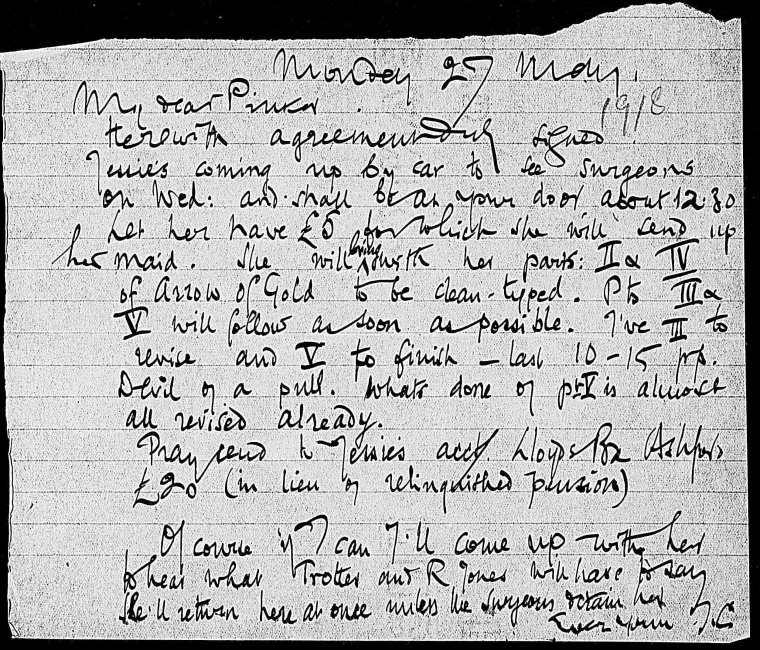 Monday 27 May.
1918
My dear Pinker.
Herewith agreement duly signed.
Jessie's coming up by car to see surgeons
on Wed: and shall be at your door about 12.30
Let her have £5 for which she will send up
her maid. She will bring with her parts: II & IV
of Arrow of Gold to be clean-typed. Pts III &
V will follow as soon as possible. I've III to
revise and V to finish – last 10–15 pp.
Devil of a pull. Whats done of pt V is almost
all revised already.
Pray send to Jessie's acct Lloyds Bk Ashford
£20 (in lieu of relinquished pension)
Of course if I can I'll come up with her
to hear what Trotter and R Jones will have to say
She'll return here at once unless the surgeons detain her
Ever yours J.C